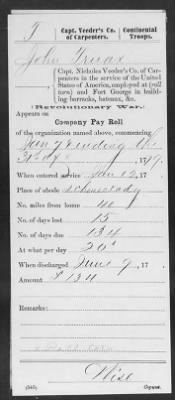 T
Capt. Veeder's Co. of Carpenters.
Continental Troops.
John Truax
Capt. Nicholas Veeder's Co. of Car-
penters in the service of the United
States of America, employed at (roll
torn) and Fort George in build-
ing barracks, bateaux, &c.
Revolutionary War.
Appears on
Company Pay Roll
of the organization named above, commencing
Jan 9 & ending the
, 1779.
When entered service Jan 12, 17
Place of abode Schenectady
No. miles from home 40
No. of days lost 15
No. of days due 134
At what per day 20s
When discharged June 9, 17
Amount £ 134
Remarks:
Wise
(545)
Copyist.